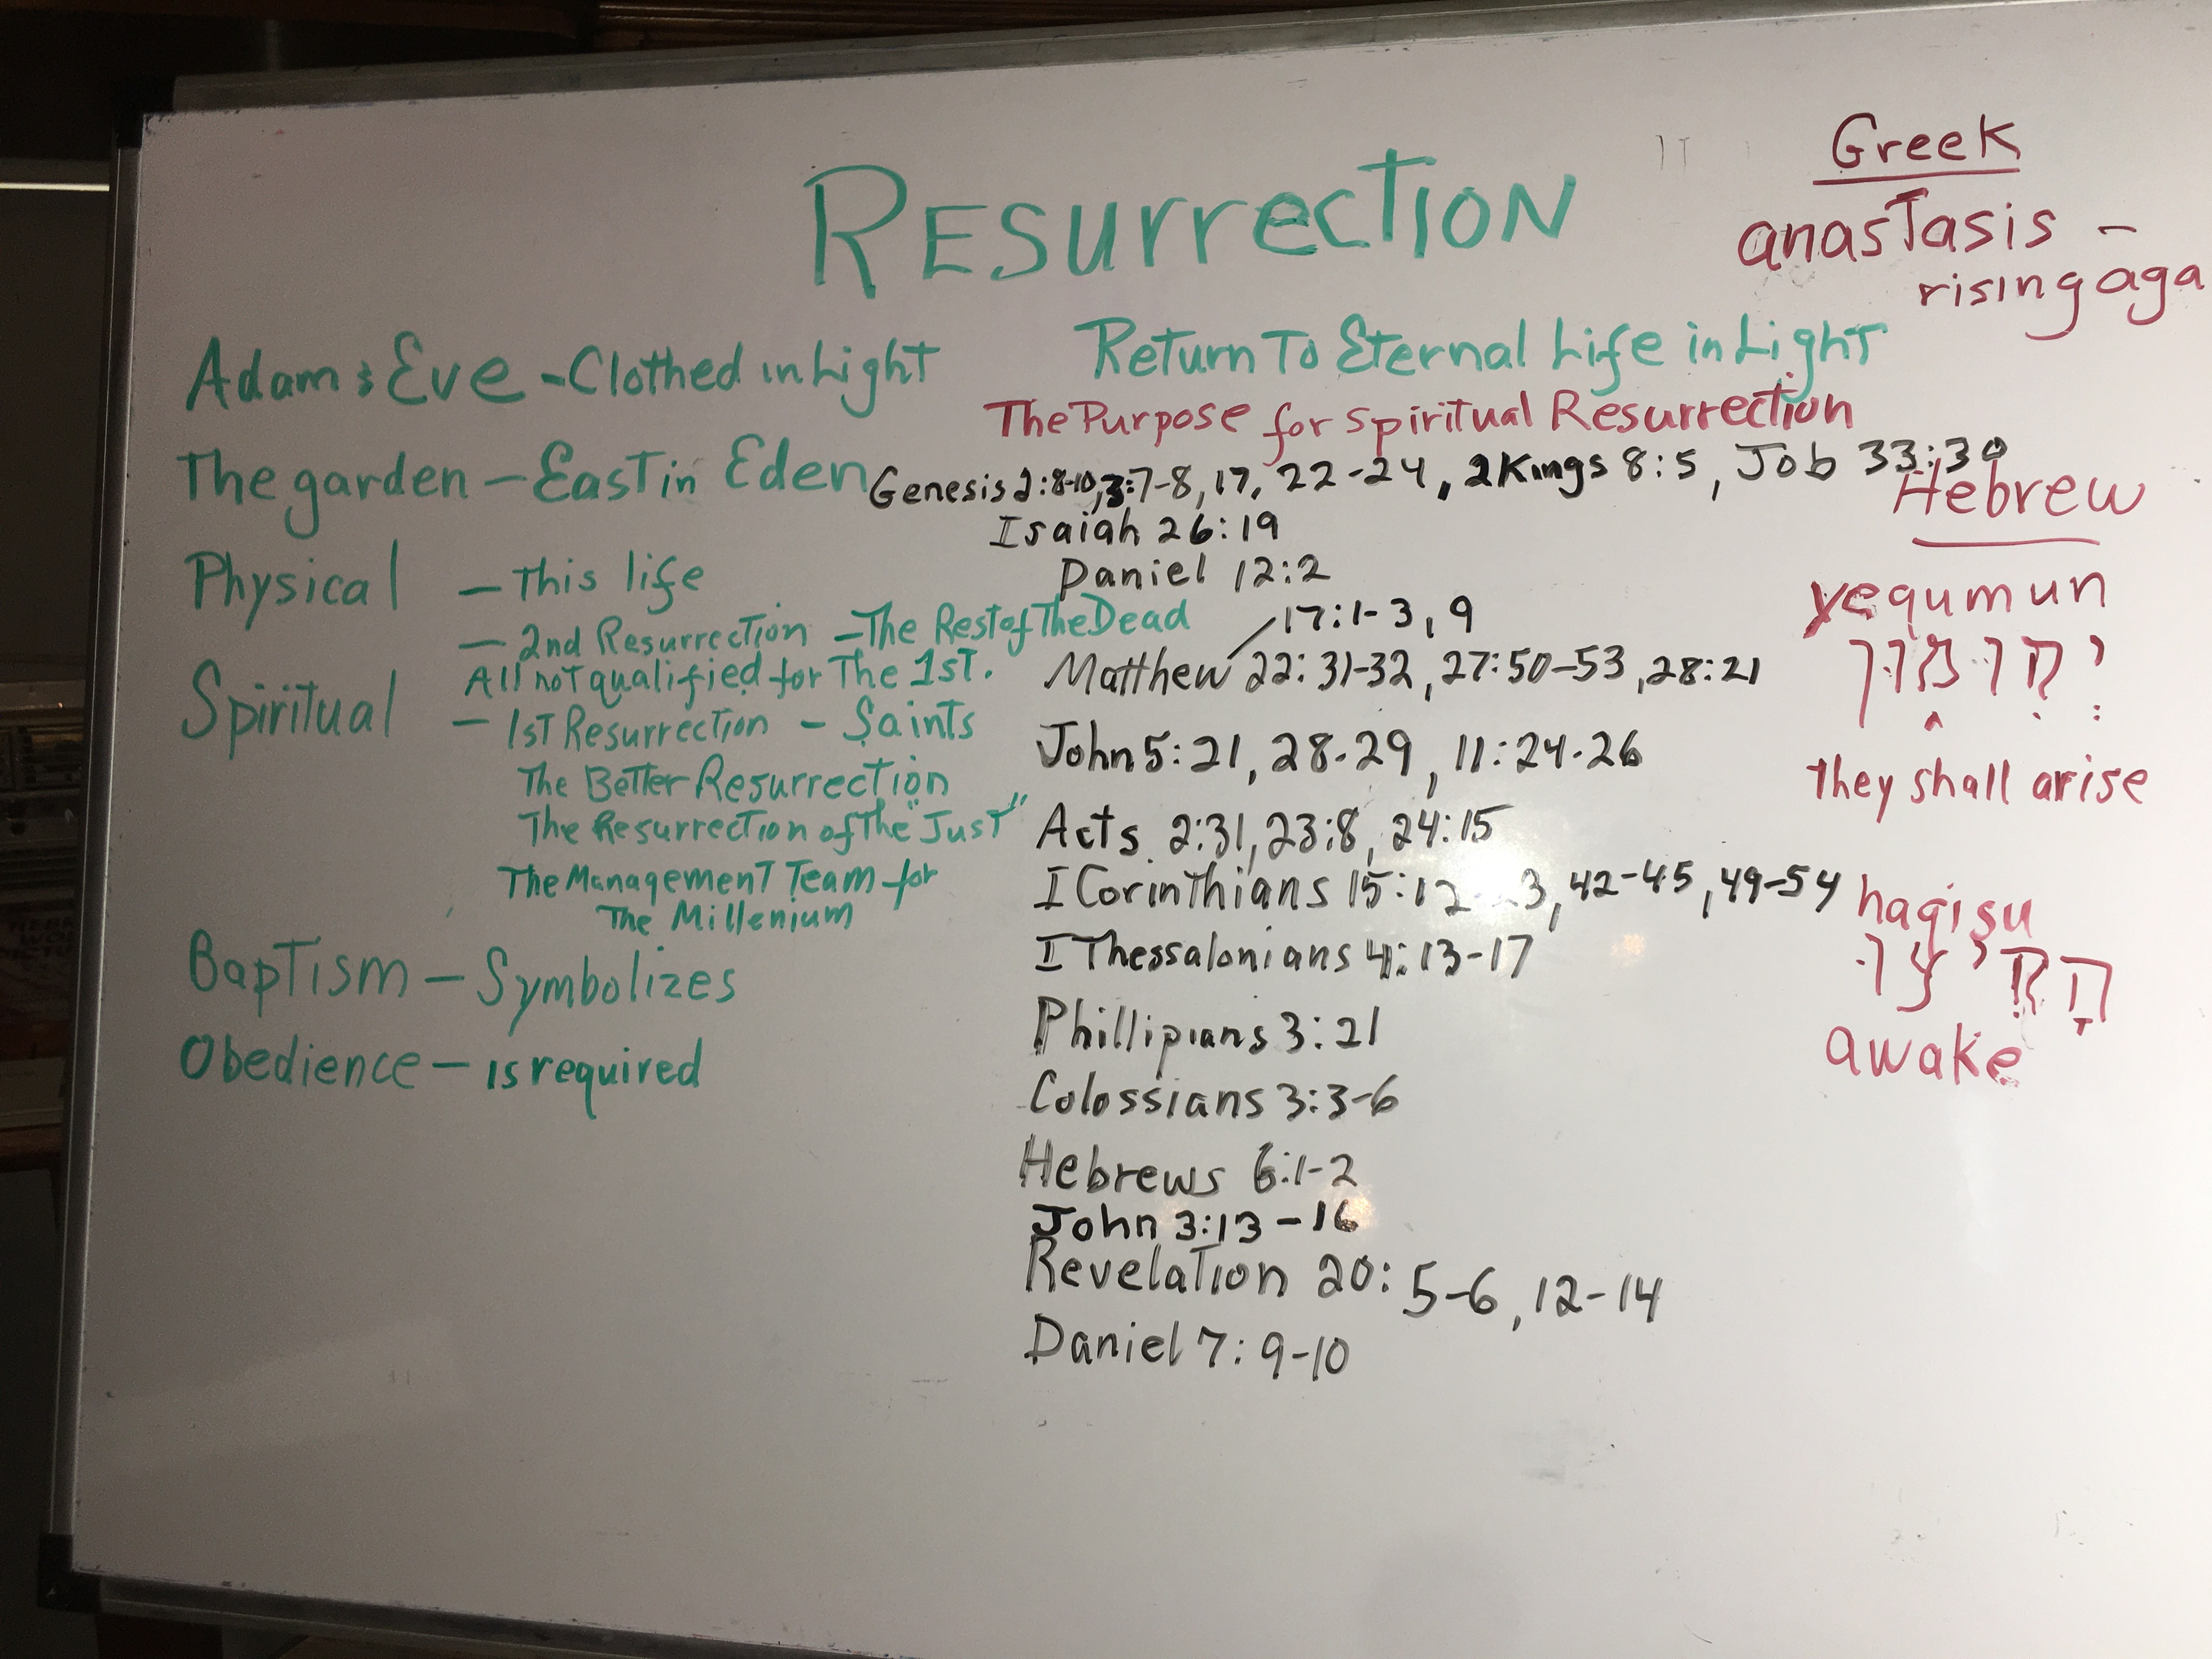 RESurrecTION
Greek
anasTasis –
rising aga
Adam & Eve – Clothed in Light
Return To Eternal Life in Light
The Purpose for Spiritual Resurrection
The garden – East in Eden
Genesis 2:8-10, 3:7-8, 17, 22-24, 2 Kings 8:5, Job 33:30
Isaiah 26:19
Daniel 12:2
Physical – This life
– 2nd Resurrection – The Rest of The Dead
All not qualified for The 1st.
17:1-3, 9
Matthew 22:31-32, 27:50-53, 28:21
Spiritual – 1st Resurrection – Saints
The Better Resurrection
The Resurrection of The "Just"
The Management Team for
The Millenium
John 5:21, 28-29, 11:24-26
Acts 2:31, 23:8, 24:15
I Corinthians 15:12- 3, 42-45, 49-54
I Thessalonians 4:13-17
Phillipians 3:21
Colossians 3:3-6
Hebrews 6:1-2
John 3:13-16
Revelation 20:5-6, 12-14
Daniel 7:9-10
Baptism – Symbolizes
Obedience – is required
Hebrew
yequmun
יְקוּמוּן
they shall arise
haqisu
הָקִיצוּ
awake